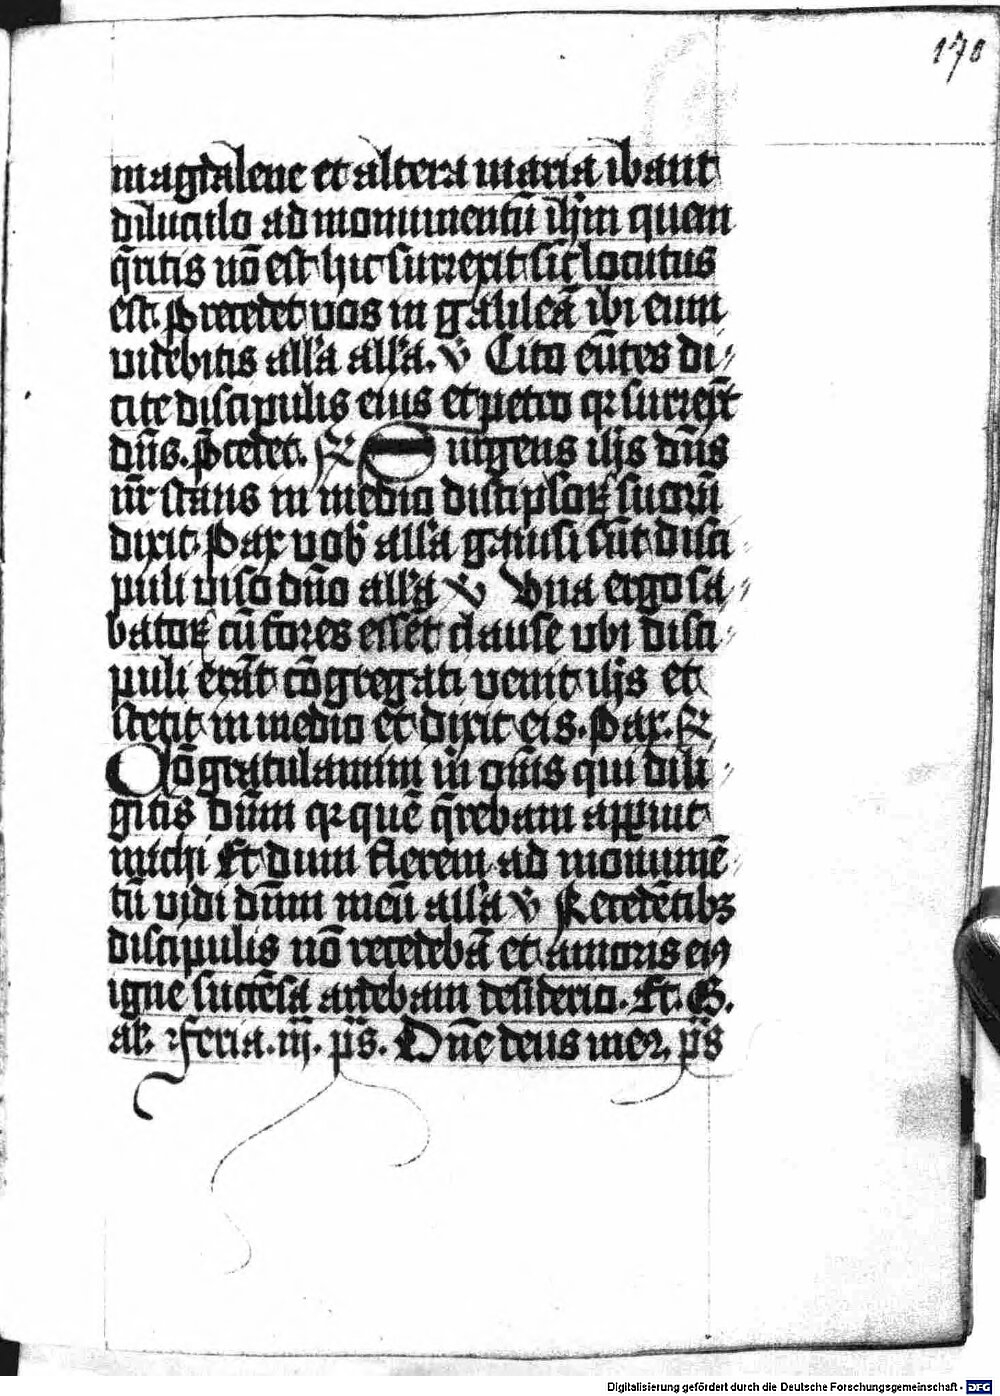 170
magdalene et altera maria ibant
diluculo ad monumentū ih̄m quem
q̄ritis nō est hic surrexit sic̄ locutus
est. Precedet vos in galileā ibi eum
videbitis all'a all'a. v̄ Cito eūtes di/
cite discipulis eius et petro qꝛ surrex̄t
dn̄s. p̄cedet. R̄ Surgens ih̄s dn̄s
nr̄ stans in medio discip̄loꝝ suorū
dixit. Pax vob᷒ all'a gauisi sūt disci
puli viso dn̄o all'a v̄ Vna ergo sa/
batoꝝ cū fores essēt clause vbi disci/
puli erāt cōgregati venit ih̄s et
stetit in medio et dixit eis. Pax. R̄
Cōgratulamini m̄ om̄s qui dili/
gitis dn̄m qꝛ quē q̄rebam apꝑuit
michi Et dum flerem ad monumē/
tū vidi dn̄m meū all'a v̄ Recedētibꝫ
discipulis nō recedebā et amoris eiꝰ
igne succēsa ardebam desiderio. Et. G.
ar. ꝛ feria. iij. ps̄. Dn̄e deus meꝰ. ps̄
Digitalisierung gefördert durch die Deutsche Forschungsgemeinschaft - DFG